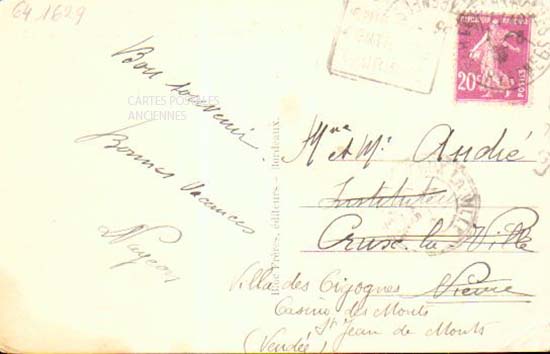 64 1629
Bon souvenir.
Bonnes Vacances
CARTES POSTALES
ANCIENNES
Frères, éditeurs - Bordeaux.
20c
POSTES
Mme et Mr André
Instituteur
la Ville
Vienne
Villa des Cigognes
Casino des Monts
St Jean de Monts
(Vendée)